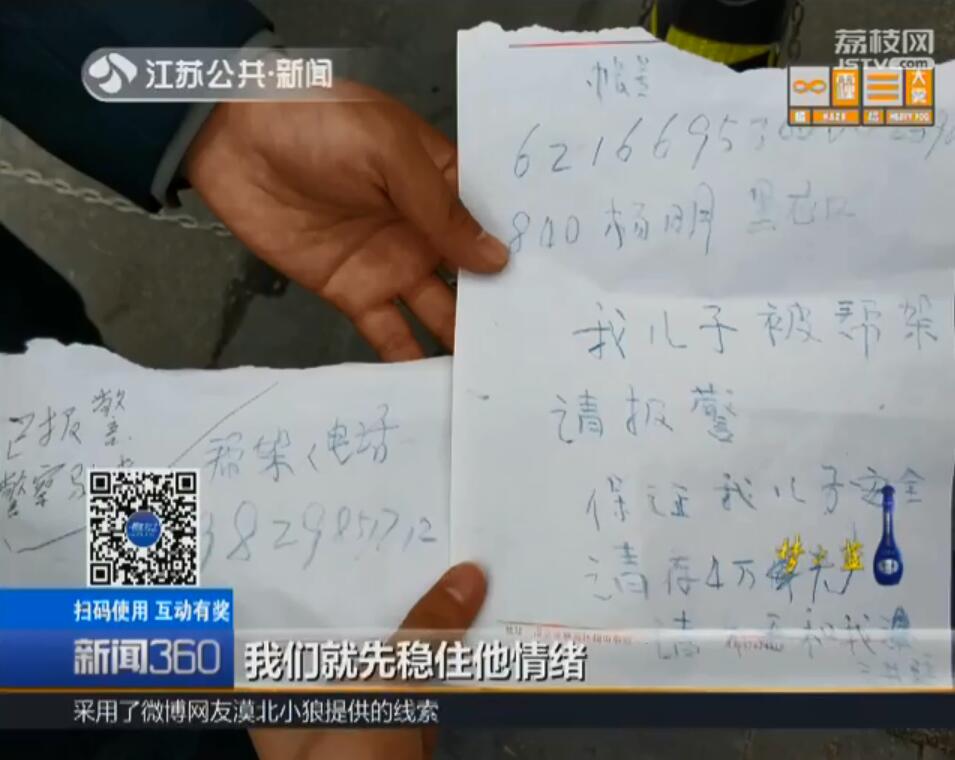 荔枝网
JSTV.com
江苏公共·新闻
大雾
霾
HAZE
HEAVY FOG
6216695
840 杨明 黑龙江
我儿子被帮架
请报警
保证我儿子安全
请存4万
请
和我
已报警
警察
帮架人电话
382985
梦之蓝
扫码使用 互动有奖
新闻360
我们就先稳住他情绪
采用了微博网友漠北小狼提供的线索